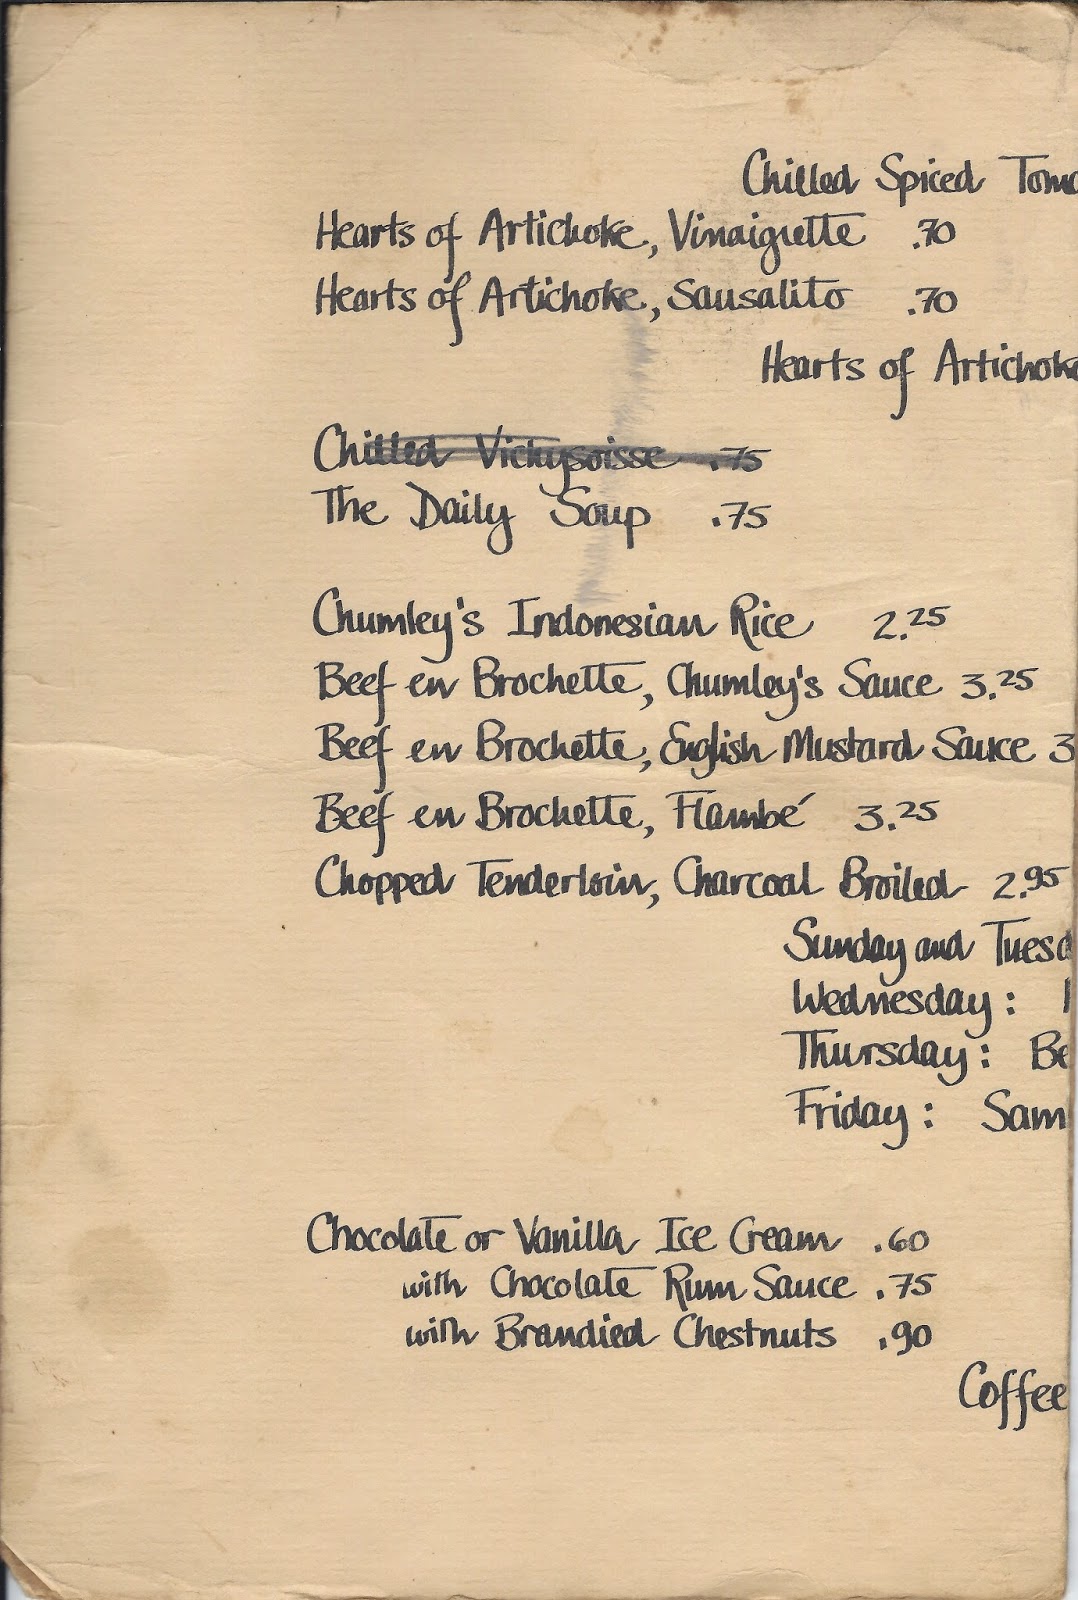 Chilled Spiced Tom
Hearts of Artichoke, Vinaigrette .70
Hearts of Artichoke, Sausalito .70
Hearts of Artichoke
Chilled Vichysoisse .75
The Daily Soup .75
Chumley's Indonesian Rice 2.25
Beef en Brochette, Chumley's Sauce 3.25
Beef en Brochette, English Mustard Sauce 3
Beef en Brochette, Flambé 3.25
Chopped Tenderloin, Charcoal Broiled 2.95
Sunday and Tuesd
Wednesday:
Thursday: Be
Friday: Sam
Chocolate or Vanilla Ice Cream .60
with Chocolate Rum Sauce .75
with Brandied Chestnuts .90
Coffee